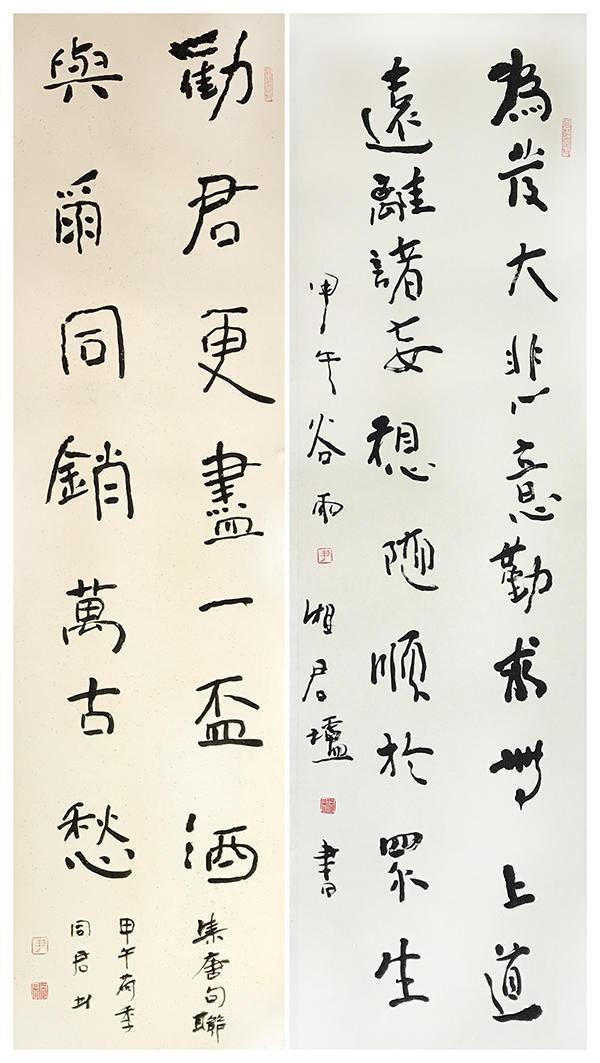 為發大悲意勤求無上道
遠離諸妄想隨順於眾生
甲午谷雨 湘君 書
勸君更盡一盃酒
與爾同銷萬古愁
集唐句聯
甲午荷季
同君
尹
尹